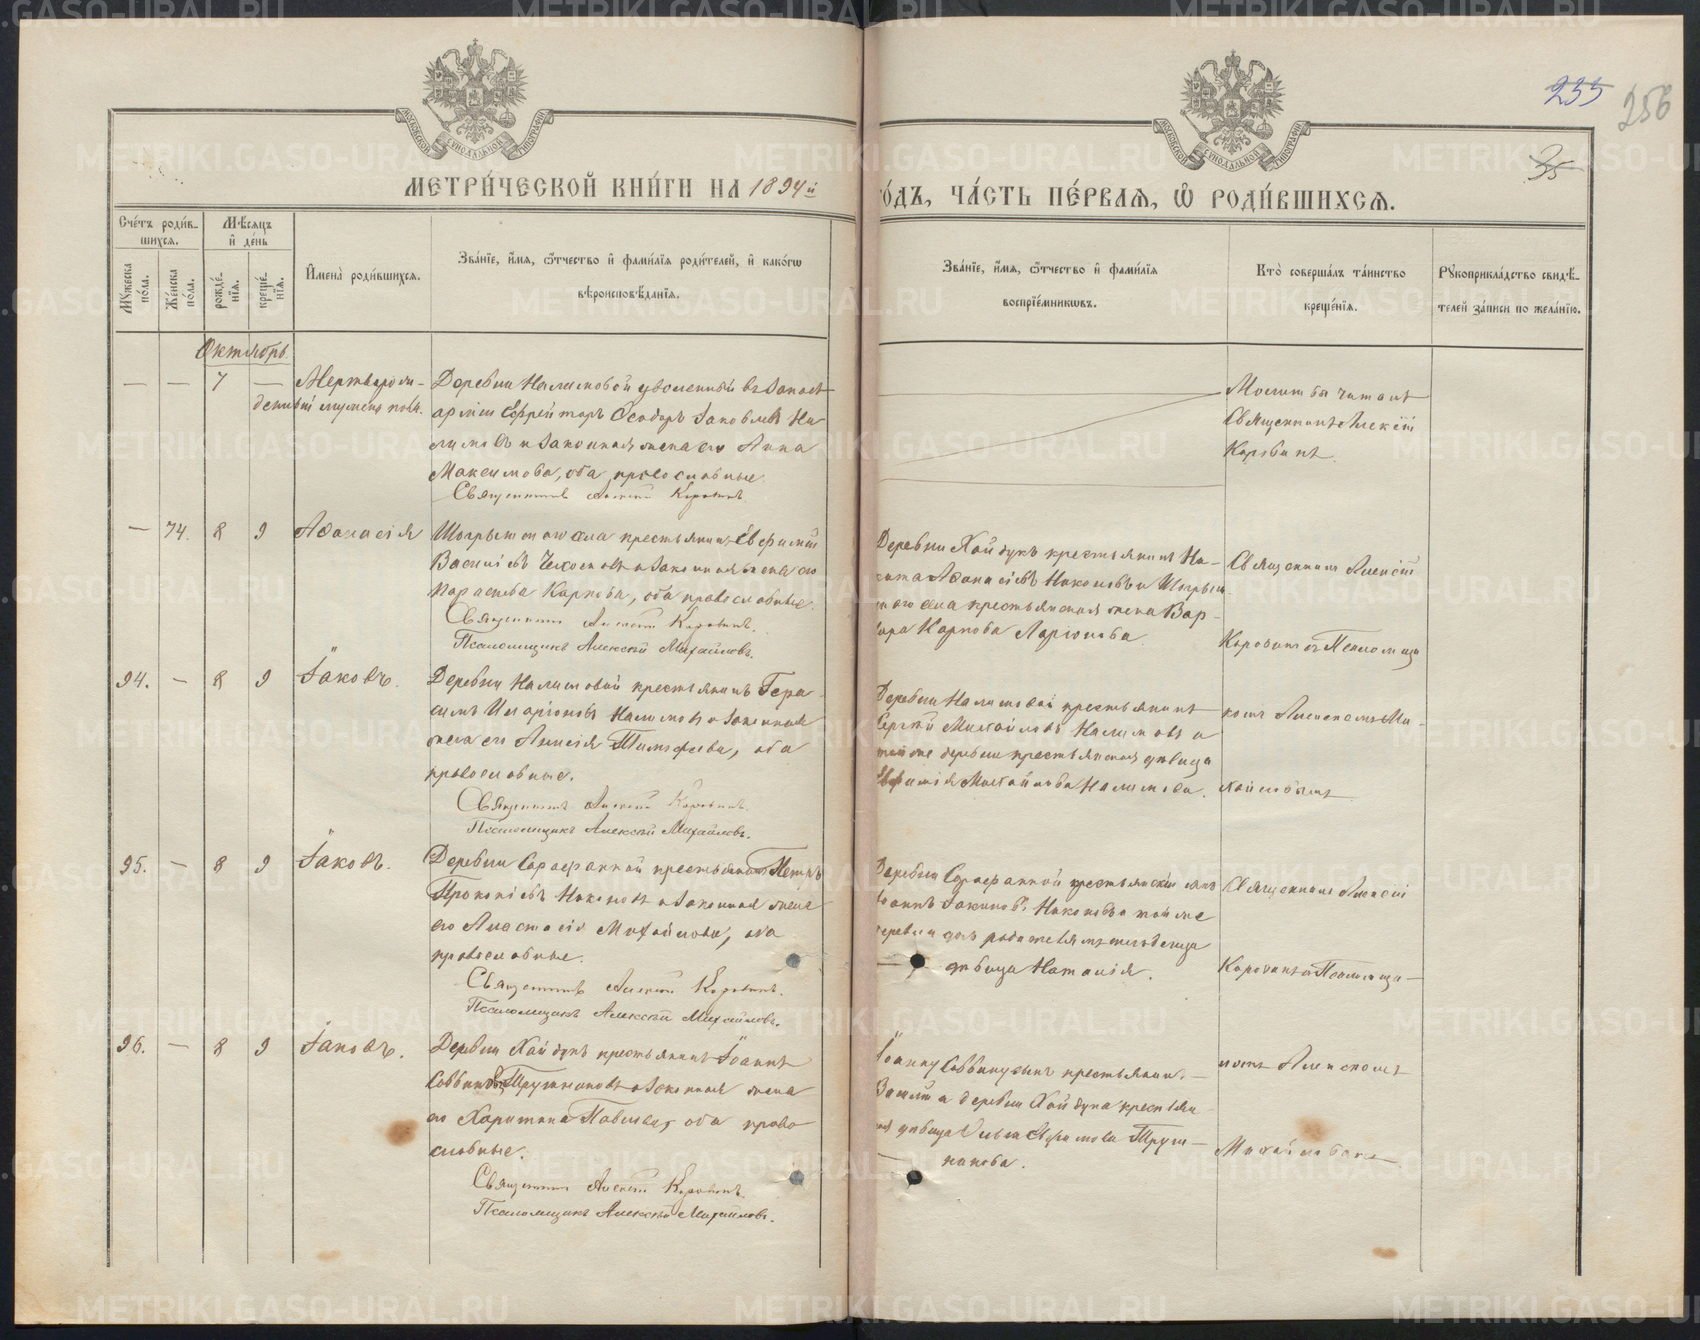 255
256
35
МОСКОВСКОЙ СѴНОДАЛЬНОЙ ТИПОГРАФІИ
МОСКОВСКОЙ СѴНОДАЛЬНОЙ ТИПОГРАФІИ
МЕТРИ́ЧЕСКОЙ КНИ́ГИ НА 1894й
ГО́ДЪ, ЧА́СТЬ ПЕ́РВАЯ, Ѡ҆ РОДИ́ВШИХСЯ.
Сче́тъ роди́в-
шихся.
Мѣ́сяцъ
и҆ де́нь
Мꙋ́жеска по́ла.
Же́нска по́ла.
рожде́-нїя.
креще́-нїя.
И҆мена̀ роди́вшихся.
Зва́нїе, и҆́мя, ѻ҆́тчество и҆ фами́лїя роди́телей, и҆ како́гѡ
вѣроисповѣ́данїя.
Зва́нїе, и҆́мя, ѻ҆́тчество и҆ фами́лїя
воспрїе́мникѡвъ.
Кто̀ соверша́лъ та́инство
креще́нїя.
Рꙋкоприкла́дство свидѣ́-
телей за́писи по жела́нїю.
Октябрь.
— — 7 — Мертворож-
денный мужеск. пола.
Деревни Налимовой уволенный въ запасъ
арміи Ефрейторъ Ѳеодоръ Іаковлевъ На-
лимовъ и законная жена его Анна
Максимова, оба православные.
Священникъ Алексій Коровинъ.
Молитву читалъ
Священникъ Алексій
Коровинъ.
— 74. 8 9 Аѳанасія
крестьянинъ Евфимій
Василіевъ и законная жена его
Параскева Карпова, оба православные.
Священникъ Алексій Коровинъ.
Псаломщикъ Алексѣй Михайловъ.
Деревни Хайдукъ крестьянинъ Ни-
кита Аѳанасіевъ Никоновъ и
села крестьянская жена Вар-
вара Карпова Ларионова.
Священникъ Алексій
Коровинъ съ Псаломщи
94. — 8 9 Іаковъ.
Деревни Налимовой крестьянинъ Гера-
симъ Иларіоновъ Налимовъ и законная
жена его Анисія Тимофеева, оба
православные.
Священникъ Алексій Коровинъ.
Псаломщикъ Алексѣй Михайловъ.
Деревни Налимовой крестьянинъ
Сергій Михайловъ Налимовъ и
той же деревни крестьянская дѣвица
Евфимія Михайлова Налимова.
комъ Алексѣемъ Ми-
хайловымъ
95. — 8 9 Іаковъ.
Деревни Сарафанной крестьянинъ Петръ
Прокопіевъ Никоновъ и законная жена
его Анастасія Михайлова, оба
православные.
Священникъ Алексій Коровинъ.
Псаломщикъ Алексѣй Михайловъ.
Деревни Сарафанной крестьянскій сынъ
Іоаннъ Никоновъ и той же
деревни
дѣвица Наталія.
Священникъ Алексій
Коровинъ и Псаломщи-
96. — 8 9 Іаковъ.
Деревни Хайдукъ крестьянинъ Іоаннъ
Саввинъ Трушниковъ и законная жена
его Харитина Павлова, оба право-
славные.
Священникъ Алексій Коровинъ.
Псаломщикъ Алексѣй Михайловъ.
деревни Хайдука крестьян
дѣвица Труш-
никова.
комъ Алексѣемъ
Михайловымъ
METRIKI.GASO-URAL.RU